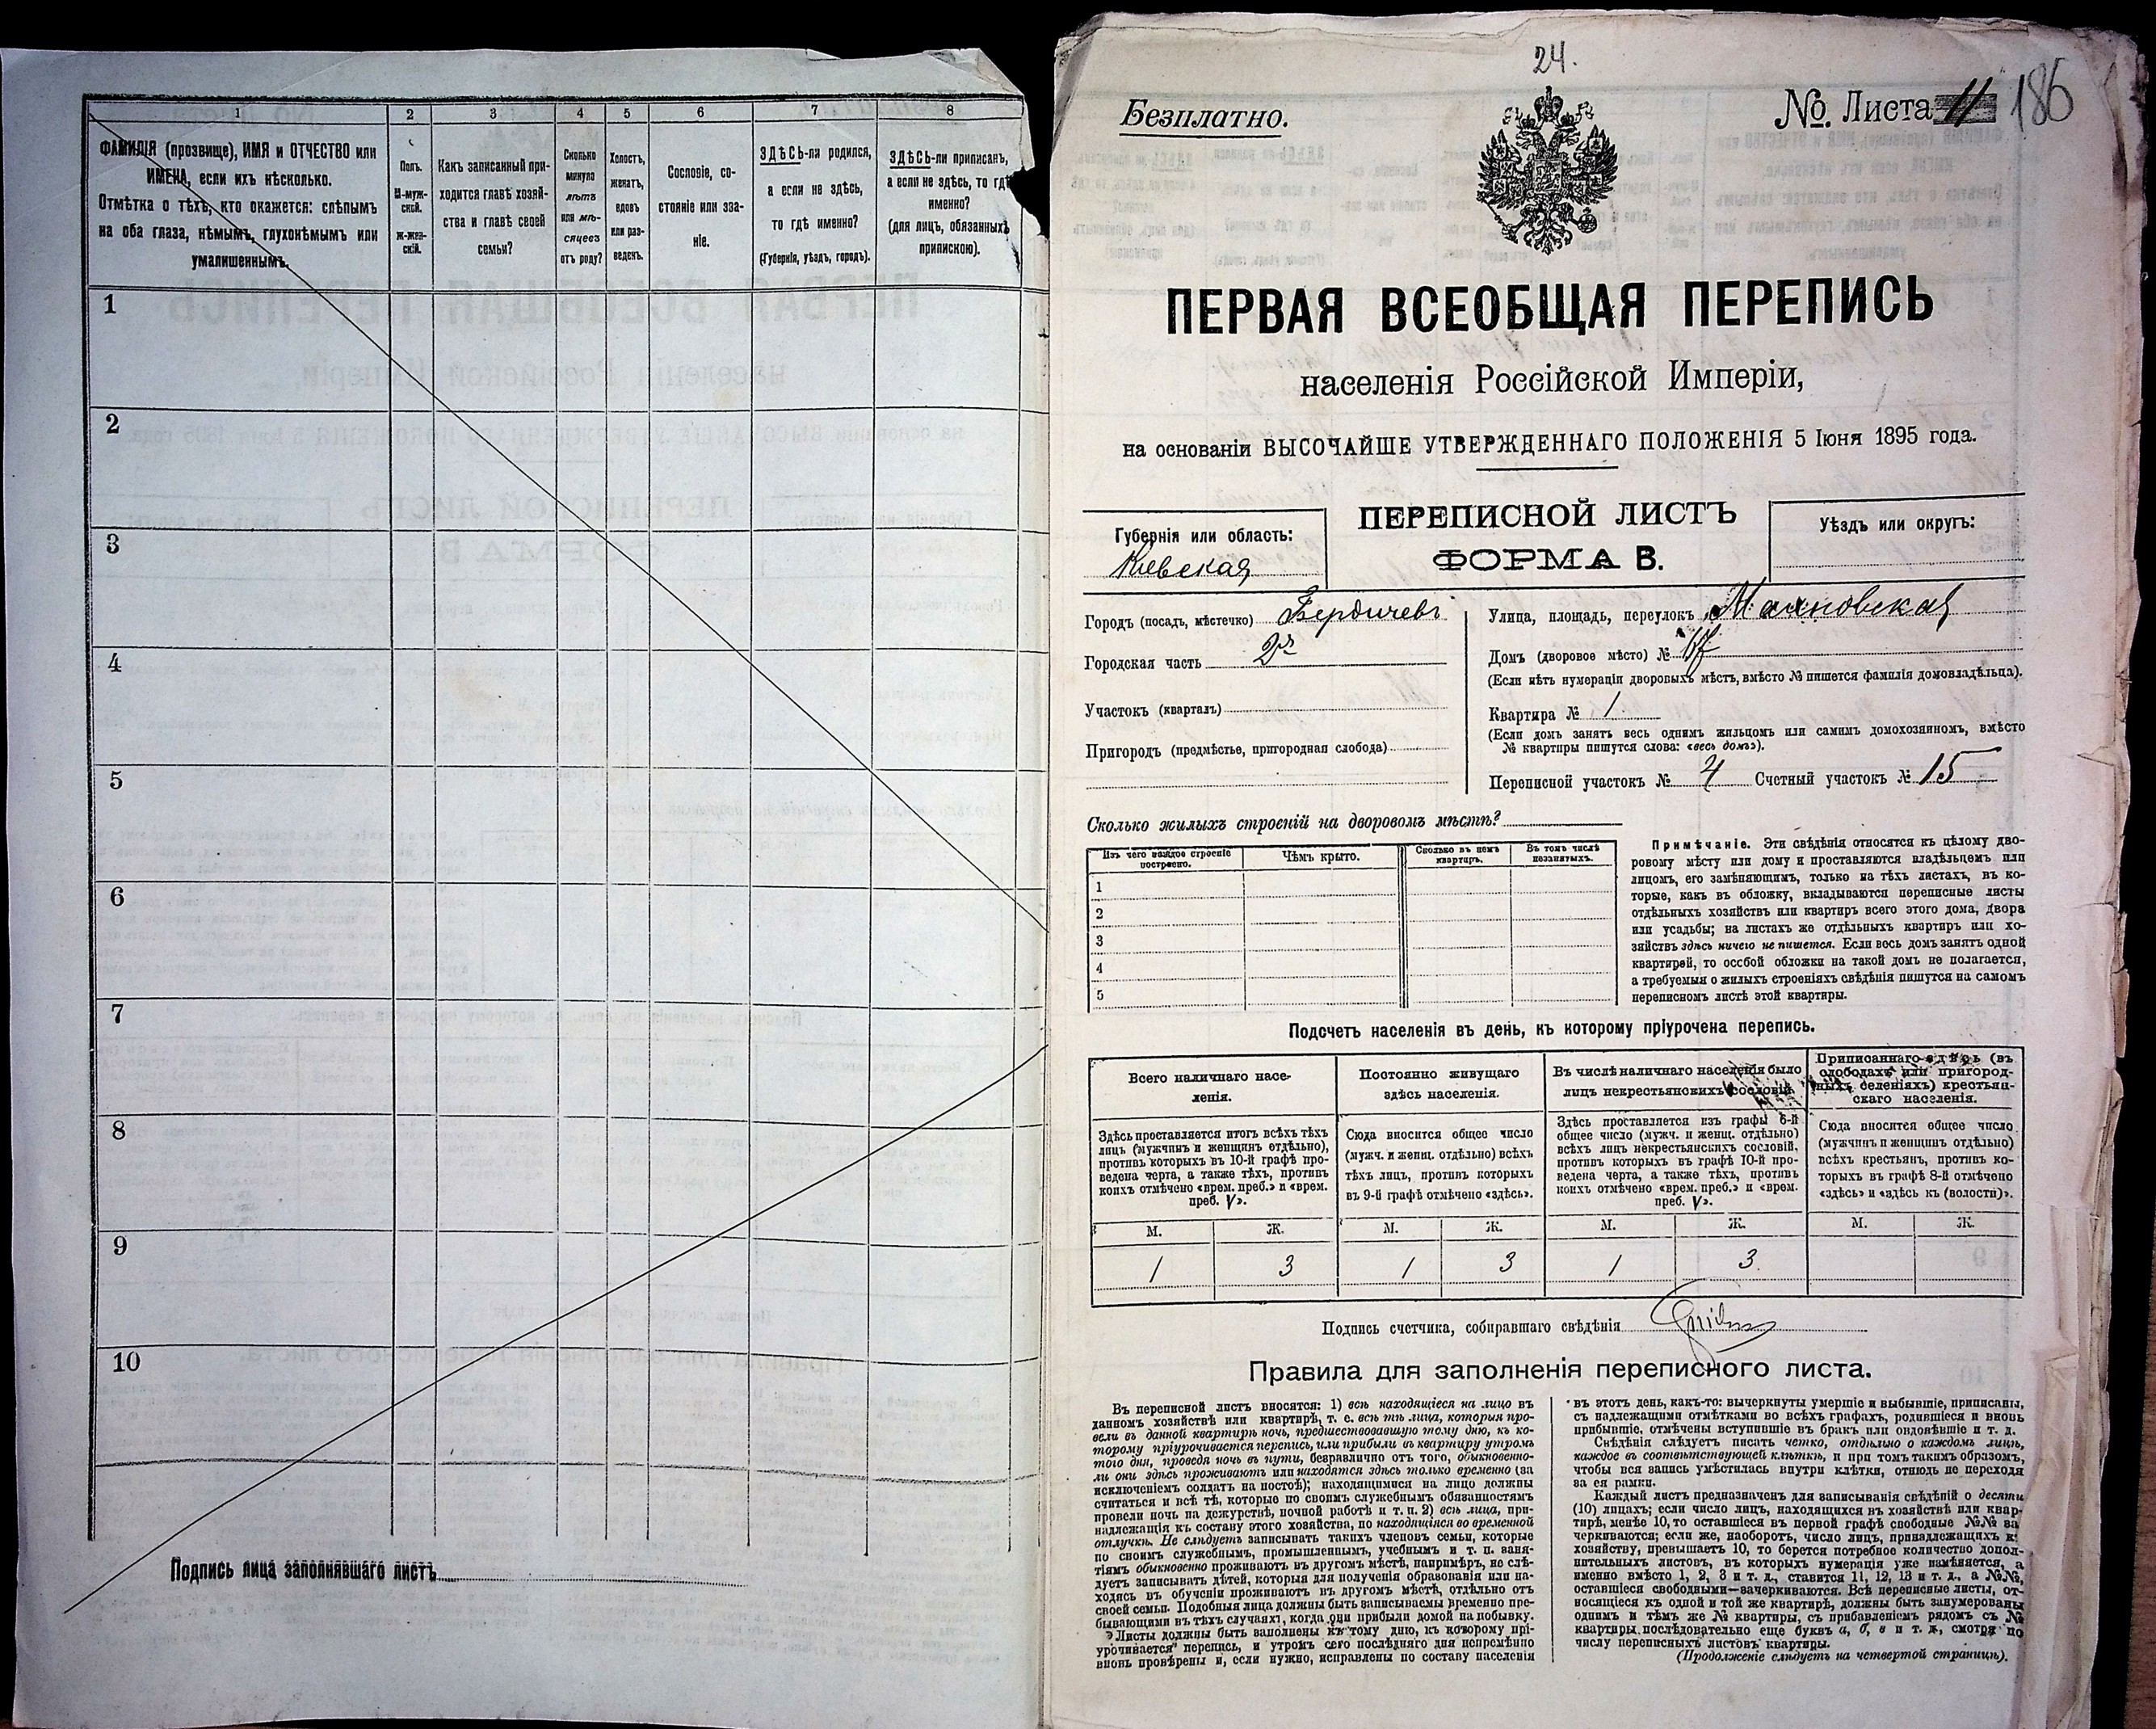 1 2 3 4 5 6 7 8
ФАМИЛІЯ (прозвище), ИМЯ и ОТЧЕСТВО или
ИМЕНА, если ихъ нѣсколько.
Отмѣтка о тѣхъ, кто окажется: слѣпымъ
на оба глаза, нѣмымъ, глухонѣмымъ или
умалишеннымъ.
Полъ.
М-муж-
ской.
Ж-жен-
скій.
Какъ записанный при-
ходится главѣ хозяй-
ства и главѣ своей
семьи?
Сколько
минуло
лѣтъ
или мѣ-
сяцевъ
отъ роду?
Холостъ,
женатъ,
вдовъ
или раз-
веденъ.
Сословіе, со-
стояніе или зва-
ніе.
ЗДѢСЬ-ли родился,
а если не здѣсь,
то гдѣ именно?
(Губернія, уѣздъ, городъ).
ЗДѢСЬ-ли приписанъ,
а если не здѣсь, то гдѣ
именно?
(для лицъ, обязанныхъ
припискою).
1
2
3
4
5
6
7
8
9
10
Подпись лица заполнявшаго листъ
24.
Безплатно.
№ Листа 11 186
ПЕРВАЯ ВСЕОБЩАЯ ПЕРЕПИСЬ
населенія Россійской Имперіи,
на основаніи ВЫСОЧАЙШЕ УТВЕРЖДЕННАГО ПОЛОЖЕНІЯ 5 Іюня 1895 года.
Губернія или область:
Кіевская
ПЕРЕПИСНОЙ ЛИСТЪ
ФОРМА В.
Уѣздъ или округъ:
Городъ (посадъ, мѣстечко) Бердичевъ
Городская часть 2я
Участокъ (кварталъ)
Пригородъ (предмѣстье, пригородная слобода)
Улица, площадь, переулокъ Махновская
Домъ (дворовое мѣсто) №
(Если нѣтъ нумераціи дворовыхъ мѣстъ, вмѣсто № пишется фамилія домовладѣльца).
Квартира № 1
(Если домъ занятъ весь однимъ жильцомъ или самимъ домохозяиномъ, вмѣсто
№ квартиры пишутся слова: «весь домъ»).
Переписной участокъ № 4 Счетный участокъ № 15
Сколько жилыхъ строеній на дворовомъ мѣстѣ?
Изъ чего каждое строеніе
построено.
Чѣмъ крыто.
Сколько въ немъ
квартиръ.
Въ томъ числѣ
незанятыхъ.
1
2
3
4
5
Примѣчаніе. Эти свѣдѣнія относятся къ цѣлому дво-
ровому мѣсту или дому и проставляются владѣльцемъ или
лицомъ, его замѣняющимъ, только на тѣхъ листахъ, въ ко-
торые, какъ въ обложку, вкладываются переписные листы
отдѣльныхъ хозяйствъ или квартиръ всего этого дома, двора
или усадьбы; на листахъ же отдѣльныхъ квартиръ или хо-
зяйствъ здѣсь ничего не пишется. Если весь домъ занятъ одной
квартирой, то особой обложки на такой домъ не полагается,
а требуемыя о жилыхъ строеніяхъ свѣдѣнія пишутся на самомъ
переписномъ листѣ этой квартиры.
Подсчетъ населенія въ день, къ которому пріурочена перепись.
Всего наличнаго насе-
ленія.
Постоянно живущаго
здѣсь населенія.
Въ числѣ наличнаго населенія было
лицъ некрестьянскихъ сословій.
Приписаннаго здѣсь (въ
слободахъ или пригород-
ныхъ селеніяхъ) крестьян-
скаго населенія.
Здѣсь проставляется итогъ всѣхъ тѣхъ
лицъ (мужчинъ и женщинъ отдѣльно),
противъ которыхъ въ 10-й графѣ про-
ведена черта, а также тѣхъ, противъ
коихъ отмѣчено «врем. преб.» и «врем.
преб. V».
Сюда вносится общее число
(мужч. и женщ. отдѣльно) всѣхъ
тѣхъ лицъ, противъ которыхъ
въ 9-й графѣ отмѣчено «здѣсь».
Здѣсь проставляется изъ графы 6-й
общее число (мужч. и женщ. отдѣльно)
всѣхъ лицъ некрестьянскихъ сословій,
противъ которыхъ въ графѣ 10-й про-
ведена черта, а также тѣхъ, противъ
коихъ отмѣчено «врем. преб.» и «врем.
преб. V».
Сюда вносится общее число
(мужчинъ и женщинъ отдѣльно)
всѣхъ крестьянъ, противъ ко-
торыхъ въ графѣ 8-й отмѣчено
«здѣсь» и «здѣсь къ (волости)».
М. Ж. М. Ж. М. Ж. М. Ж.
1 3 1 3 1 3
Подпись счетчика, собиравшаго свѣдѣнія
Правила для заполненія переписного листа.
Въ переписной листъ вносятся: 1) всѣ находящіеся на лицо въ
данномъ хозяйствѣ или квартирѣ, т. е. всѣ тѣ лица, которыя про-
вели въ данной квартирѣ ночь, предшествовавшую тому дню, къ ко-
торому пріурочивается перепись, или прибыли въ квартиру утромъ
того дня, проведя ночь въ пути, безразлично отъ того, обыкновенно-
ли они здѣсь проживаютъ или находятся здѣсь только временно (за
исключеніемъ солдатъ на постоѣ); находящимися на лицо должны
считаться и всѣ тѣ, которые по своимъ служебнымъ обязанностямъ
провели ночь на дежурствѣ, ночной работѣ и т. п. 2) всѣ лица, при-
надлежащія къ составу этого хозяйства, но находящіяся во временной
отлучкѣ. Не слѣдуетъ записывать такихъ членовъ семьи, которые
по своимъ служебнымъ, промышленнымъ, учебнымъ и т. п. заня-
тіямъ обыкновенно проживаютъ въ другомъ мѣстѣ, напримѣръ, не слѣ-
дуетъ записывать дѣтей, которыя для полученія образованія или на-
ходясь въ обученіи проживаютъ въ другомъ мѣстѣ, отдѣльно отъ
своей семьи. Подобныя лица должны быть записываемы временно пре-
бывающими въ тѣхъ случаяхъ, когда они прибыли домой на побывку.
Листы должны быть заполнены къ тому дню, къ которому прі-
урочивается перепись, и утромъ сего послѣдняго дня непремѣнно
вновь провѣрены и, если нужно, исправлены по составу населенія
въ этотъ день, какъ-то: вычеркнуты умершіе и выбывшіе, приписаны,
съ надлежащими отмѣтками во всѣхъ графахъ, родившіеся и вновь
прибывшіе, отмѣчены вступившіе въ бракъ или овдовѣвшіе и т. д.
Свѣдѣнія слѣдуетъ писать четко, отдѣльно о каждомъ лицѣ,
каждое въ соотвѣтствующей клѣткѣ, и при томъ такимъ образомъ,
чтобы вся запись умѣстилась внутри клѣтки, отнюдь не переходя
за ея рамки.
Каждый листъ предназначенъ для записыванія свѣдѣній о десяти
(10) лицахъ; если число лицъ, находящихся въ хозяйствѣ или квар-
тирѣ, менѣе 10, то оставшіеся въ первой графѣ свободные №№ за-
черкиваются; если же, наоборотъ, число лицъ, принадлежащихъ къ
хозяйству, превышаетъ 10, то берется потребное количество допол-
нительныхъ листовъ, въ которыхъ нумерація уже измѣняется, а
именно вмѣсто 1, 2, 3 и т. д., ставится 11, 12, 13 и т. д., а №№,
оставшіеся свободными—зачеркиваются. Всѣ переписные листы, от-
носящіеся къ одной и той же квартирѣ, должны быть занумерованы
однимъ и тѣмъ же № квартиры, съ прибавленіемъ рядомъ съ №
квартиры, послѣдовательно еще буквъ а, б, в и т. д., смотря по
числу переписныхъ листовъ квартиры.
(Продолженіе слѣдуетъ на четвертой страницѣ).